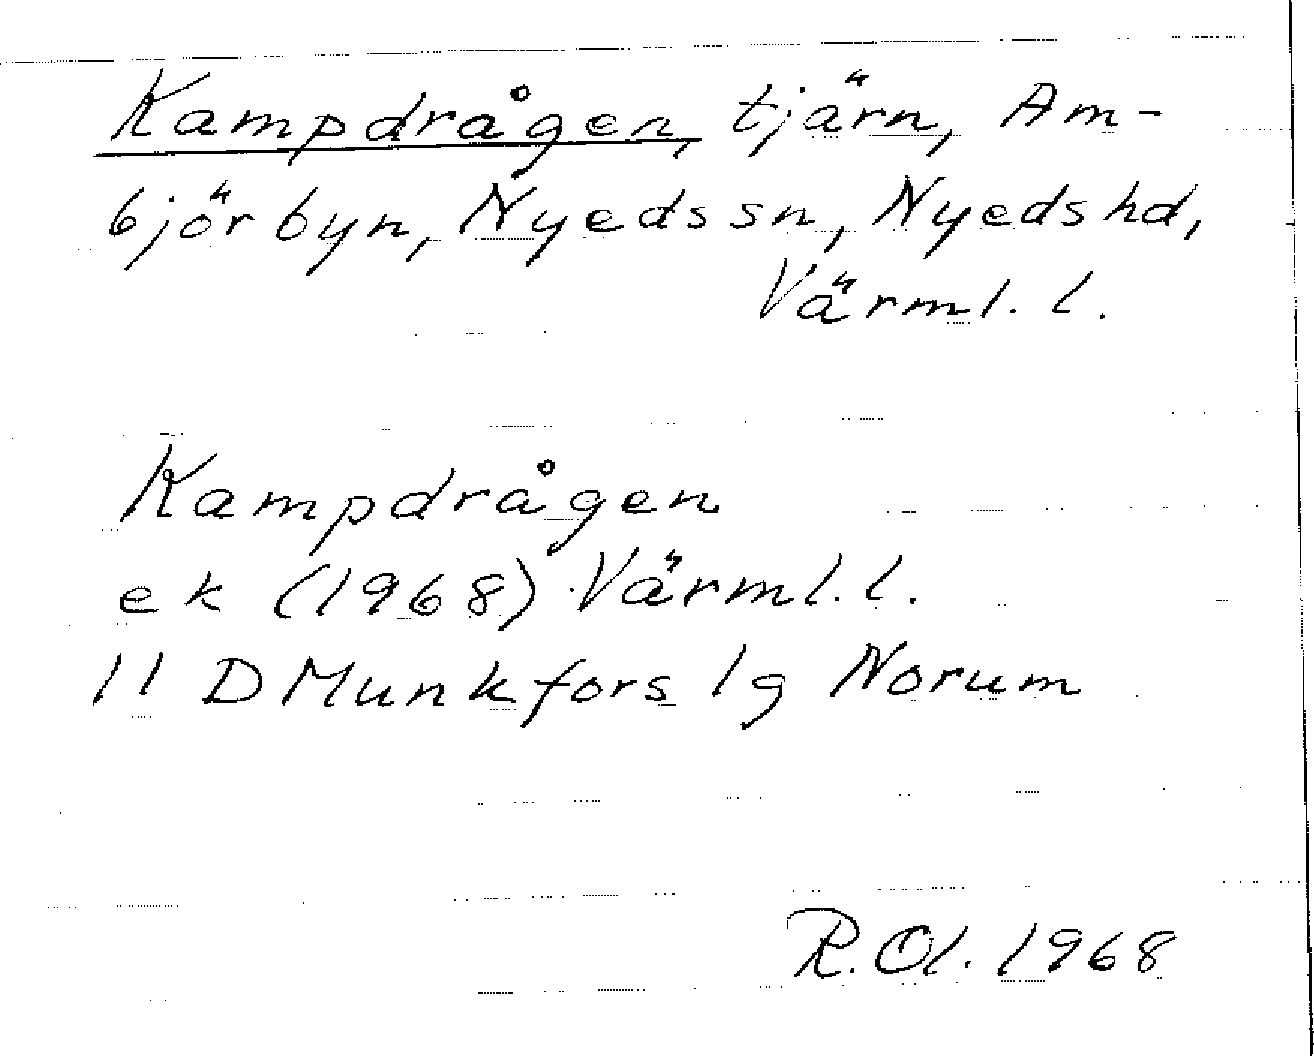 Kampdrågen, tjärn, Am-
björbyn, Nyeds sn, Nyeds hd,
Värml. l.
Kampdrågen
ek (1968) Värml. l.
11 D Munkfors 1g Norum
R. Ol. 1968